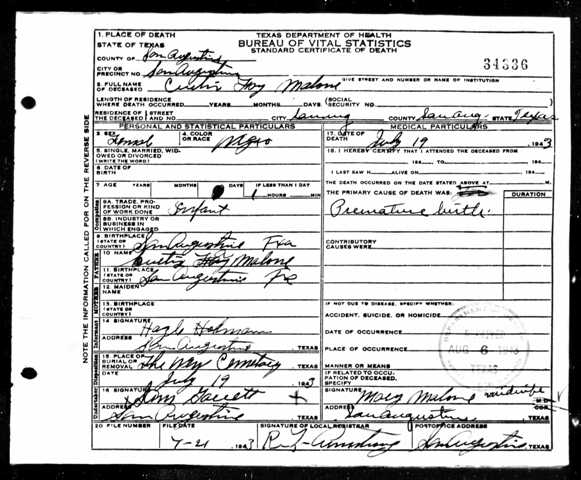 1. PLACE OF DEATH
STATE OF TEXAS
COUNTY OF San Augustine
CITY OR PRECINCT NO. San Augustine
TEXAS DEPARTMENT OF HEALTH
BUREAU OF VITAL STATISTICS
STANDARD CERTIFICATE OF DEATH
34336
GIVE STREET AND NUMBER OR NAME OF INSTITUTION
2. FULL NAME OF DECEASED Malone
LENGTH OF RESIDENCE WHERE DEATH OCCURRED YEARS MONTHS DAYS (SOCIAL SECURITY NO.
RESIDENCE OF THE DECEASED (STREET AND NO. CITY COUNTY San Aug. STATE Texas
PERSONAL AND STATISTICAL PARTICULARS
3. SEX
4. COLOR OR RACE Negro
5. SINGLE, MARRIED, WIDOWED OR DIVORCED (WRITE THE WORD)
6. DATE OF BIRTH
7. AGE YEARS MONTHS DAYS IF LESS THAN 1 DAY
1 HOURS MIN.
8A. TRADE, PROFESSION OR KIND OF WORK DONE Infant
8B. INDUSTRY OR BUSINESS IN WHICH ENGAGED
9. BIRTHPLACE (STATE OR COUNTRY) San Augustine
10. NAME Malone
11. BIRTHPLACE (STATE OR COUNTRY) San Augustine
12. MAIDEN NAME
13. BIRTHPLACE (STATE OR COUNTRY)
14. SIGNATURE
ADDRESS San Augustine TEXAS
15. PLACE OF BURIAL OR REMOVAL Cemetery TEXAS
DATE July 19 1943
16. SIGNATURE Garrett
ADDRESS San Augustine TEXAS
MEDICAL PARTICULARS
17. DATE OF DEATH July 19 1943
18. I HEREBY CERTIFY THAT I ATTENDED THE DECEASED FROM
194 TO 194
I LAST SAW H ALIVE ON 194
THE DEATH OCCURRED ON THE DATE STATED ABOVE AT M.
THE PRIMARY CAUSE OF DEATH WAS: DURATION
Premature birth.
CONTRIBUTORY CAUSES WERE:
IF NOT DUE TO DISEASE, SPECIFY WHETHER:
ACCIDENT, SUICIDE, OR HOMICIDE
DATE OF OCCURRENCE
PLACE OF OCCURRENCE
MANNER OR MEANS
IF RELATED TO OCCUPATION OF DECEASED, SPECIFY
AUG 6 1943
TEXAS
SIGNATURE Mary Malone midwife
ADDRESS San Augustine TEXAS
20 FILE NUMBER FILE DATE 7-21 1943
SIGNATURE OF LOCAL REGISTRAR Armstrong
POSTOFFICE ADDRESS San Augustine TEXAS
NOTE THE INFORMATION CALLED FOR ON THE REVERSE SIDE